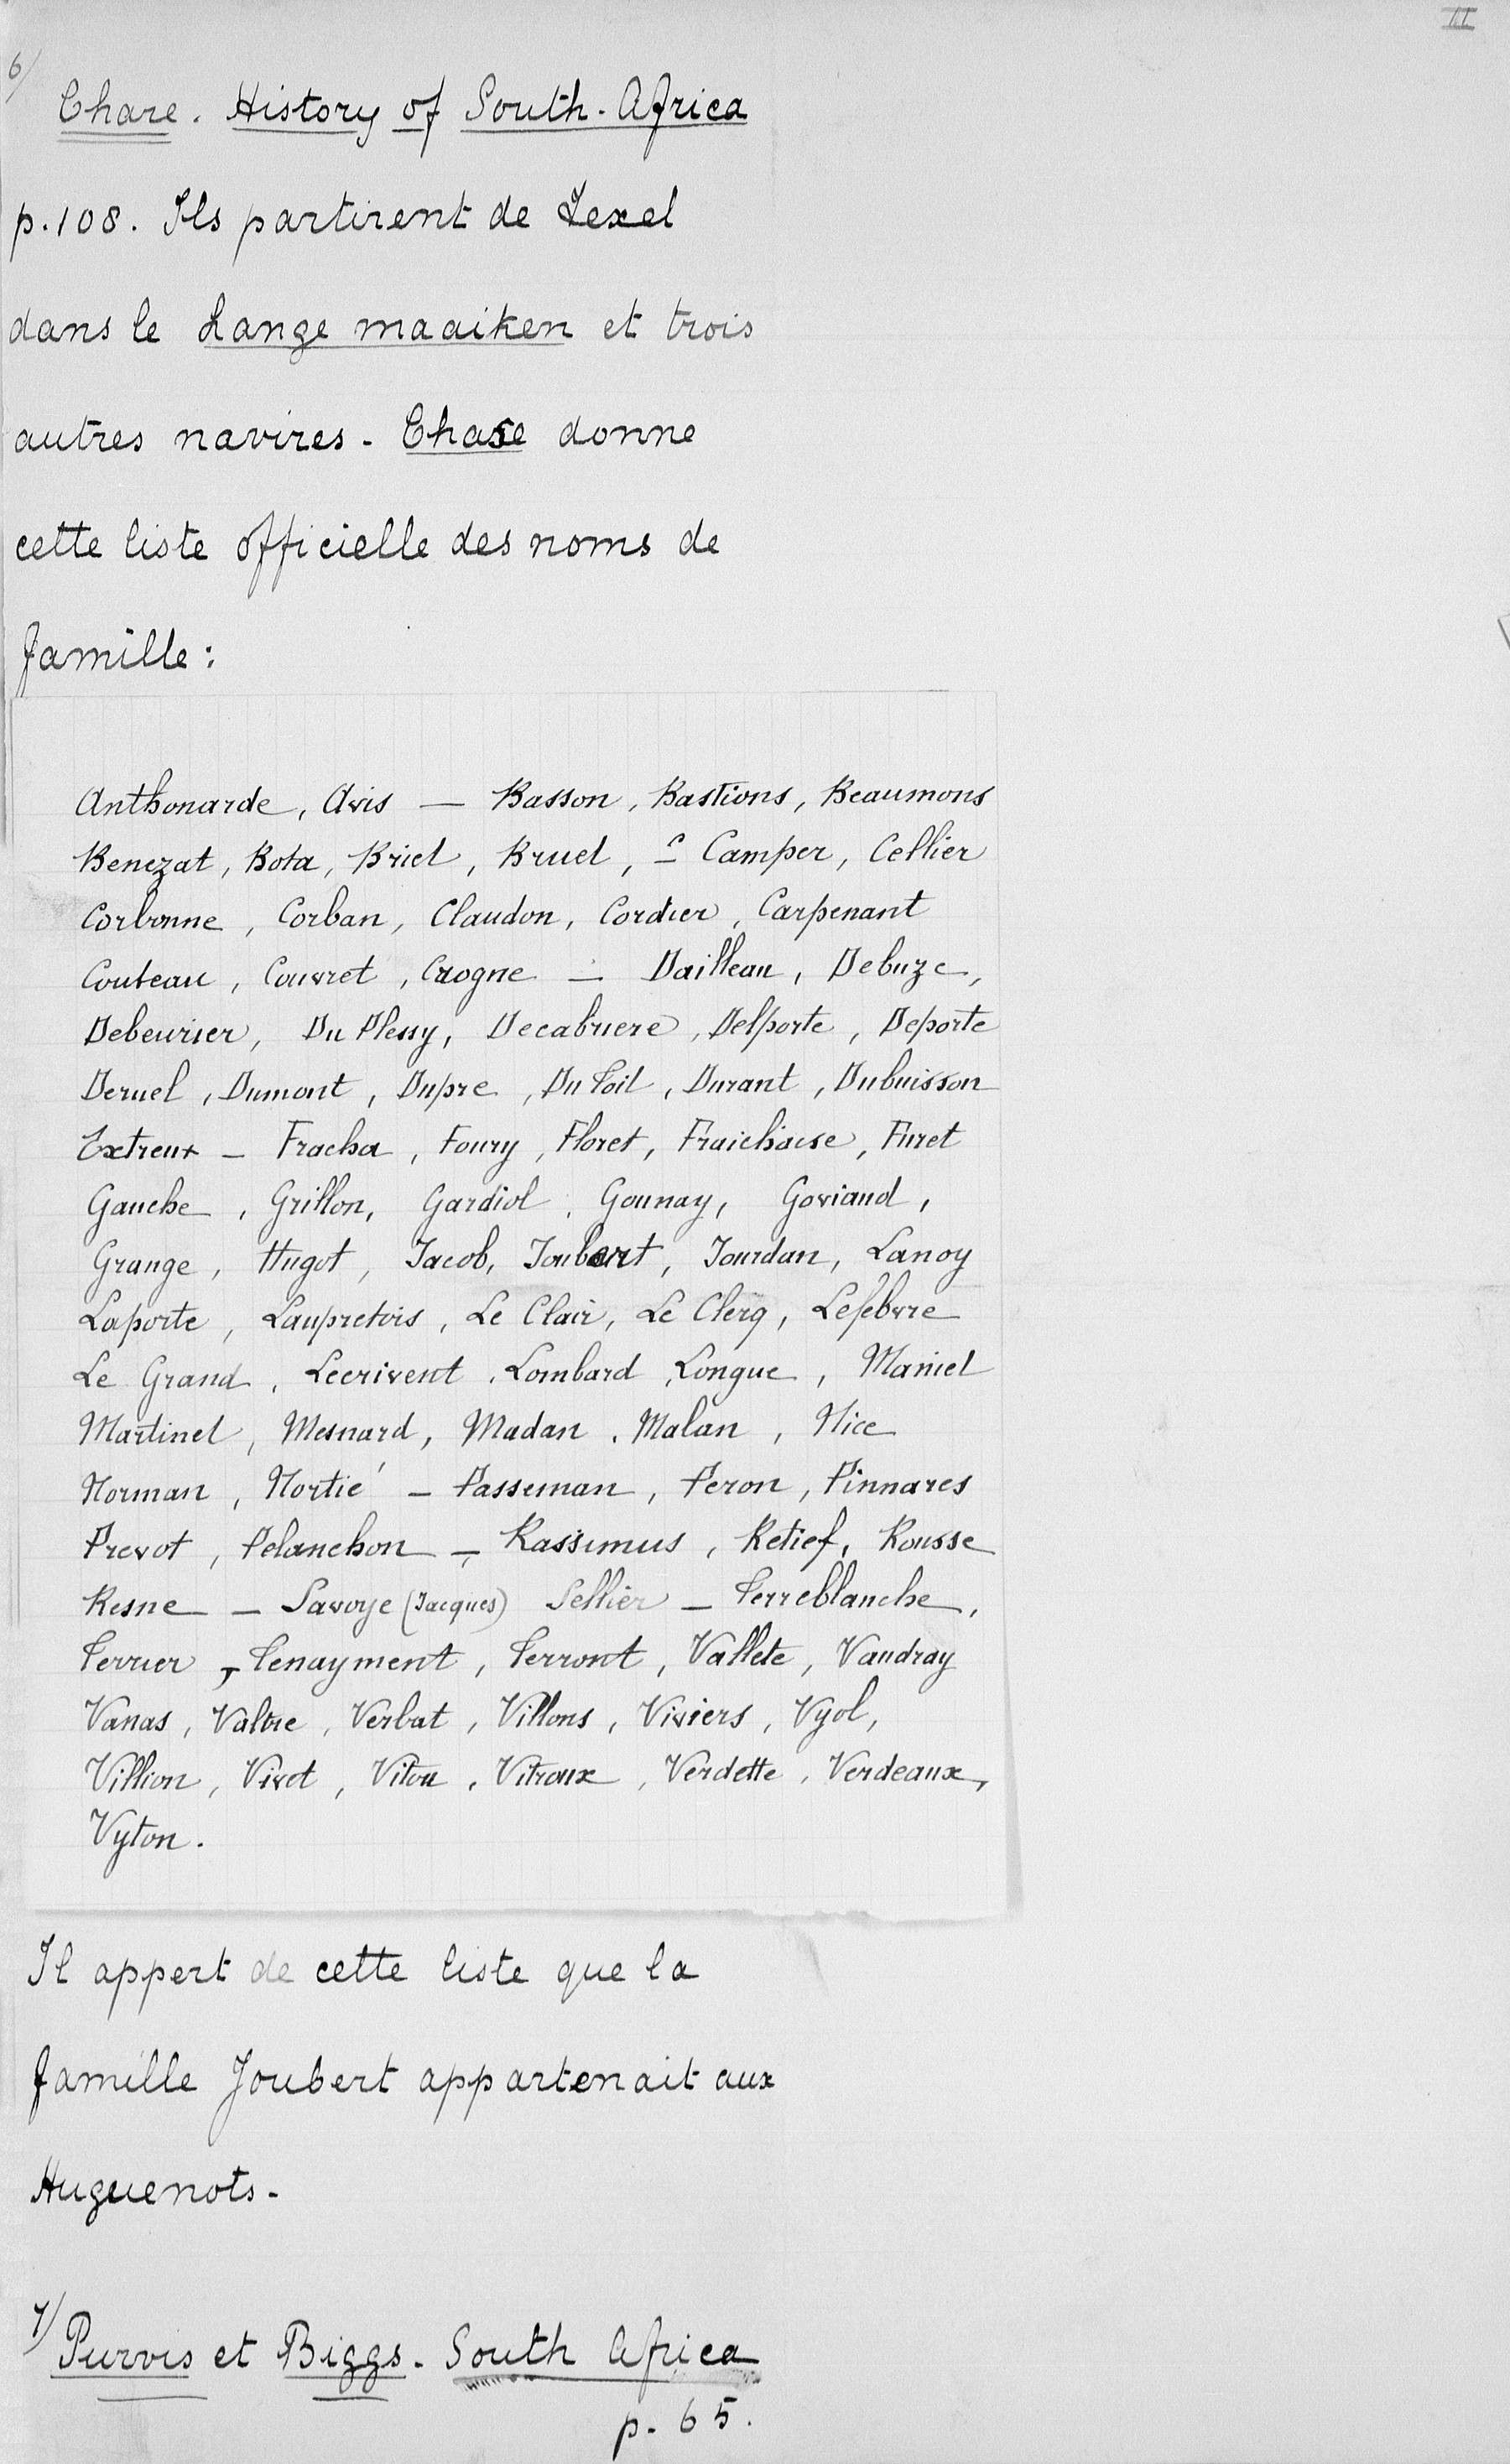 III
6/
Chase. History of South-Africa
p.108. Ils partirent de Texel
dans le Lange maaiken et trois
autres navires - Chase donne
cette liste officielle des noms de
famille :
Anthonarde, Avis — Basson, Bastions, Beaumons
Benezat, Bota, Briet, Bruet, — Camper, Cellier
Corbonne, Corban, Claudon, Cordier, Carpenant
Couteau, Couvret, Crogne — Dailleau, Debuze,
Debeurier, Du Plessy, Decabriere, Delporte, Deporte
Deruel, Dumont, Dupre, Du Toit, Durant, Dubuisson
Extreux — Fracha, Foury, Floret, Fraichaise, Furet
Gauche, Grillon, Gardiol, Gounay, Goviaud,
Grange, Hugot, Jacob, Joubert, Jourdan, Lanoy
Laporte, Laupretois, Le Clair, Le Clerq, Lefebvre
Le Grand, Lecrivent, Lombard, Longue, Maniel
Martinel, Mesnard, Madan, Malan, Nice
Norman, Nortié — Passeman, Peron, Pinnares
Prevot, Pelanchon — Rassimus, Retief, Rousse
Resne — Savoye (Jacques) Sellier — Terreblanche,
Terrier, Tenayment, Terront, Vallete, Vaudray
Vanas, Valtre, Verbat, Villons, Viviers, Vyol,
Villion, Vivet, Vitou, Vitroux, Verdette, Verdeaux,
Vyton.
Il appert de cette liste que la
famille Joubert appartenait aux
Huguenots -
7/
Purvis et Biggs - South Africa
p. 65.